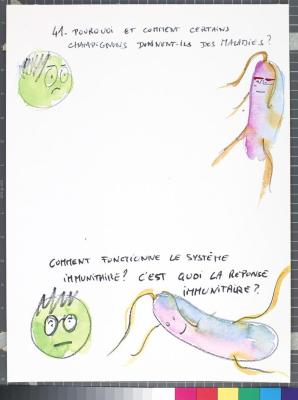 41. POURQUOI ET COMMENT CERTAINS
CHAMPIGNONS DONNENT-ILS DES MALADIES?
COMMENT FONCTIONNE LE SYSTÈME
IMMUNITAIRE? C'EST QUOI LA REPONSE
IMMUNITAIRE?